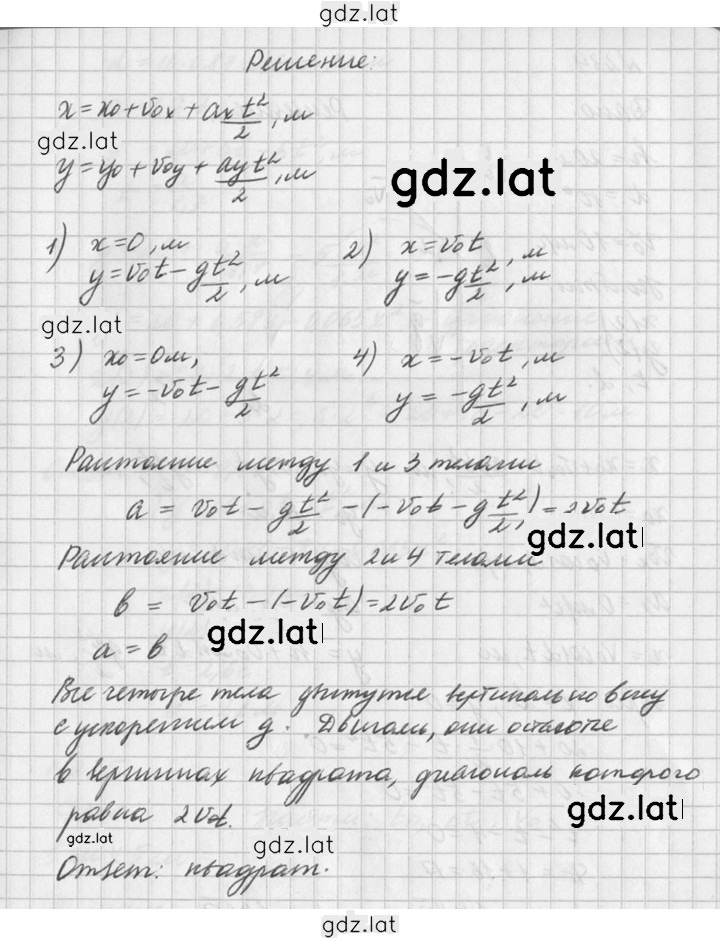 gdz.lat
Решение:
x = x₀ + v₀ₓ + aₓt²/2, м
gdz.lat
y = y₀ + v₀y + ayt²/2, м
gdz.lat
1) x = 0, м
y = v₀t - gt²/2, м
2) x = v₀t, м
y = -gt²/2, м
gdz.lat
3) x₀ = 0м,
y = -v₀t - gt²/2
4) x = -v₀t, м
y = -gt²/2, м
Расстояние между 1 и 3 телами
a = v₀t - gt²/2 - (-v₀t - gt²/2) = 2v₀t
gdz.lat
Расстояние между 2 и 4 телами
в = v₀t - (-v₀t) = 2v₀t
gdz.lat
a = в
Все четыре тела движутся вертикально вниз
с ускорением g. Двигаясь, они остаются
в вершинах квадрата, диагональ которого
gdz.lat
равна 2v₀t.
gdz.lat
gdz.lat
Ответ: квадрат.
gdz.lat